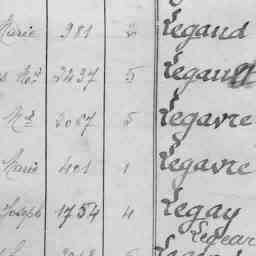 Marie 981 2 Legaud
2437 5 Legault
Md 2087 5 Legavre
Marie 401 1 Legavre
Joseph 1754 4 Legay
Legear